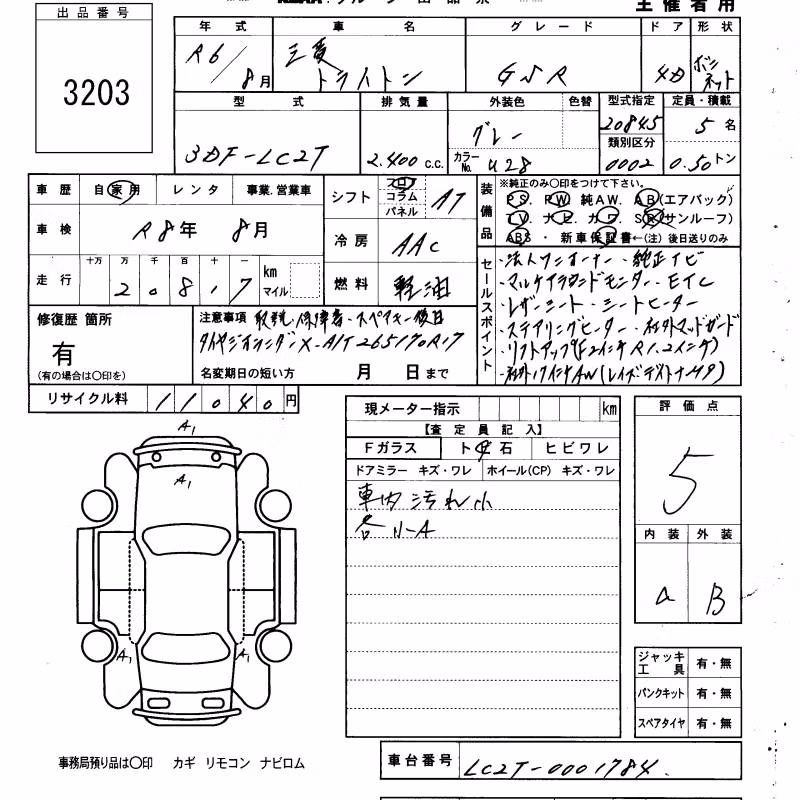 出品番号
3203
主催者用
年式 車名 グレード ドア 形状
R6/8月 三菱 トライトン GSR 4D ボンネット
型式 排気量 外装色 色替 型式指定 定員・積載
3DF-LC2T 2.400 c.c. グレー 20845 5名
カラーNo. U28 類別区分 0002 0.50トン
車歴 自家用 レンタ 事業.営業車
シフト フロア コラム パネル AT
装備品 ※純正のみ〇印をつけて下さい。
PS. PW. 純AW. AB(エアバック)
TV. ナビ. カワ. SR(サンルーフ)
ABS・新車保証書←(注)後日送りのみ
車検 R8年 8月
冷房 AAC
走行 十万 万 千 百 十 一 km マイル
2 0 8 1 7
燃料 軽油
セールスポイント
・法人ワンオーナー・純正ナビ
・マルチアラウンドモニター・ETC
・レザーシート・シートヒーター
・ステアリングヒーター・社外マッドガード
・リフトアップ(F2インチ R1.2インチ)
・社外17インチAW(レイズデイトナM9)
修復歴 箇所
有
(有の場合は〇印を)
注意事項 取説・保障書・スペアキー後日
タイヤジオランダーX-A/T 265170R17
名変期日の短い方 月 日まで
リサイクル料 11040円
現メーター指示 km
【査定員記入】
Fガラス ト 石 ヒビワレ
ドアミラー キズ・ワレ ホイール(CP) キズ・ワレ
車内汚れ小
各小A
評価点
5
内装 外装
A B
A1
A1
A1 A1
ジャッキ工具 有・無
パンクキット 有・無
スペアタイヤ 有・無
事務局預り品は〇印 カギ リモコン ナビロム
車台番号 LC2T-0001784